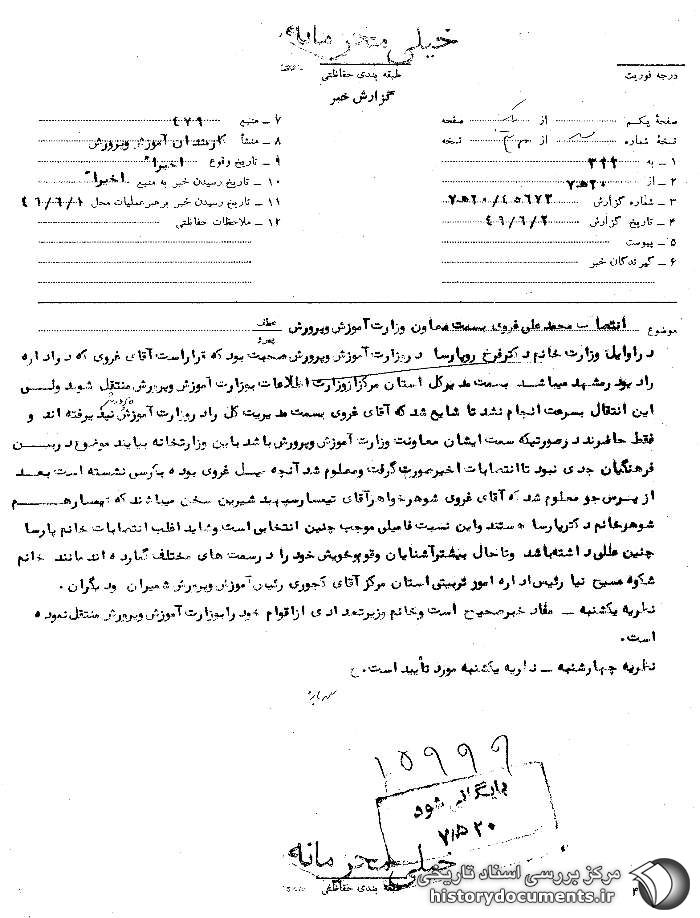 خیلی محرمانه
طبقه بندی حفاظتی
درجه فوریت
گزارش خبر
صفحه یکم از یک صفحه
نسخه شماره از نسخه
۱ ـ به ۳۲۲
۲ ـ از ۲۰هـ۷
۳ ـ شماره گزارش ۴۵۶۷۳/۲۰هـ۷
۴ ـ تاریخ گزارش ۴۶/۶/۲
۵ ـ پیوست
۶ ـ گیرندگان خبر
۷ ـ منبع ۴۷۹
۸ ـ منشأ کارمندان آموزش وپرورش
۹ ـ تاریخ وقوع اخیراً
۱۰ ـ تاریخ رسیدن خبر به منبع اخیراً
۱۱ ـ تاریخ رسیدن خبر برهبر عملیات محل ۴۶/۶/۱
۱۲ ـ ملاحظات حفاظتی
موضوع انتصاب محمد علی غروی بسمت معاون وزارت آموزش وپرورش عطف
پیرو
در اوایل وزارت خانم دکتر فرخ روپارسا در وزارت آموزش وپرورش صحبت بود که قرار است آقای غروی که در اداره
رادیو در مشهد میباشند بسمت مدیر کل استان مرکز از وزارت اطلاعات بوزارت آموزش وپرورش منتقل شوند ولی
این انتقال بسرعت انجام نشد تا شایع شد که آقای غروی بسمت مدیریت کل را در وزارت آموزش وپرورش نپذیرفته اند و
فقط حاضرند در صورتیکه سمت ایشان معاونت وزارت آموزش وپرورش باشد باین وزارتخانه بیایند موضوع در بین
فرهنگیان جدی نبود تا انتصابات اخیر صورت گرفت ومعلوم شد آنچه میل غروی بوده بکرسی نشسته است بعد
از پرس جو معلوم شد که آقای غروی شوهر خواهر آقای تیمسار سپهبد شیرین سخن میباشند که تیمسار هم
شوهر خانم دکتر پارسا هستند واین نسبت فامیلی موجب چنین انتخابی است وشاید اغلب انتصابات خانم پارسا
چنین عللی داشته باشد وتا حال بیشتر آشنایان وقوم وخویش خود را در سمت های مختلف گمارده اند مانند خانم
شکوه مسیح نیا رئیس اداره امور تربیتی استان مرکز آقای کجوری رئیس آموزش وپرورش شمیران ودیگران .
نظریه یکشنبه ـ مفاد خبر صحیح است وخانم وزیر تعدادی از اقوام خود را بوزارت آموزش وپرورش منتقل نموده
است.
نظریه چهارشنبه ـ نظریه یکشنبه مورد تأیید است. ح
۱۵۹۹۹
بایگانی شود
۲۰هـ۷
خیلی محرمانه
طبقه بندی حفاظتی
۴
مرکز بررسی اسناد تاریخی
historydocuments.ir